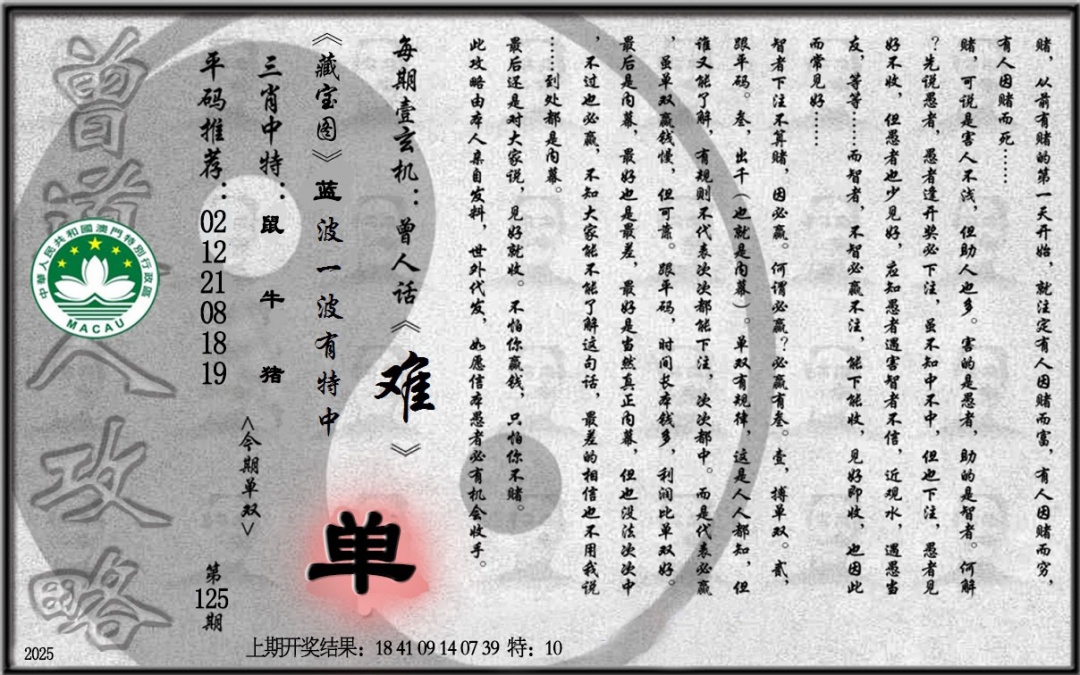 赌，从前有赌的第一天开始，就注定有人因赌而富，有人因赌而穷，
有人因赌而死……
赌，可说是害人不浅，但助人也多。害的是愚者，助的是智者。何解
？先说愚者，愚者逢开奖必下注，虽不知中不中，但也下注，愚者见
好不收，但愚者也少见好，应知愚者遇害智者不信，近观水，遇愚当
友，等等……而智者，不智必赢不注，能下能收，见好即收，也因此
而常见好……
智者下注不算赌，因必赢。何谓必赢？必赢有叁。壹，搏单双。贰，
跟平码。叁，出千（也就是内幕）。单双有规律，这是人人都知，但
谁又能了解，有规则不代表次次都能下注，次次都中。而是代表必赢
，虽单双赢钱慢，但可靠。跟平码，时间长本钱多，利润比单双好。
最后是内幕，最好也是最差，最好是当然真正内幕，但也没法次次中
，不过也必赢，不知大家能不能了解这句话，最差的相信也不用我说
……到处都是内幕。
最后还是对大家说，见好就收。不怕你赢钱，只怕你不赌。
此攻略由本人亲自发料，世外代发，如愿信本愚者必有机会收手。
每期壹玄机：曾人话《难》
《藏宝图》蓝波一波有特中
三肖中特：鼠 牛 猪
平码推荐：02 12 21 08 18 19
<今期单双>
单
第125期
曾道人攻略
中華人民共和國澳門特別行政區
MACAU
上期开奖结果：18 41 09 14 07 39 特：10
2025